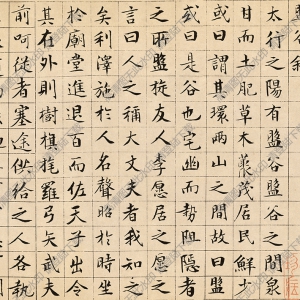 谷敘
太行之陽有盤谷盤谷之間泉
甘而土肥草木藂茂居民鮮少
或曰謂其環兩山之間故曰盤
或曰是谷也宅幽而勢阻隱者
之所盤旋友人李愿居之愿之
言曰人之稱大丈夫者我知之
矣利澤施於人名聲昭於時坐
於廟堂進退百而佐天子出令
其在外則樹旗旄羅弓矢武夫
前呵從者塞途供給之人各執